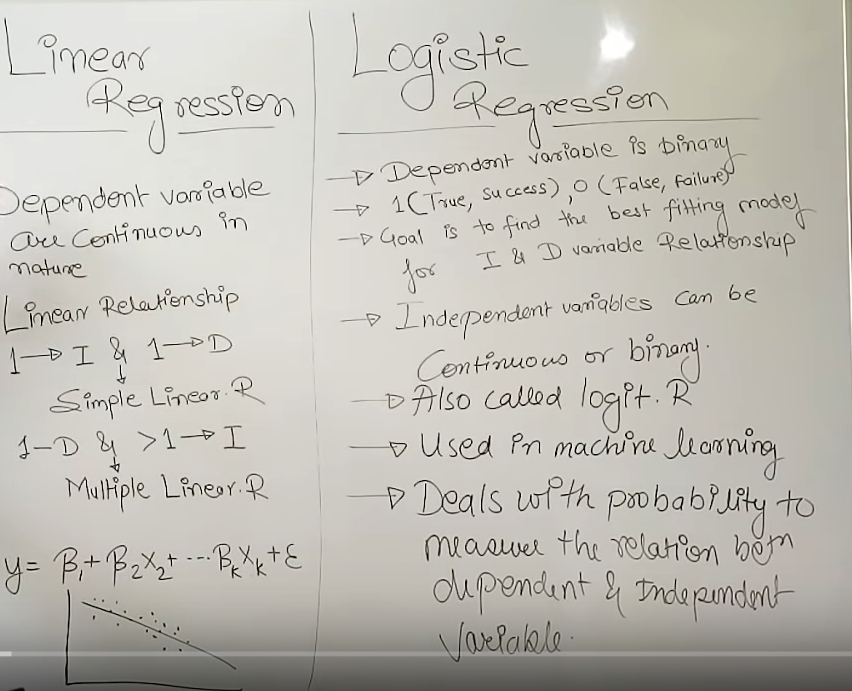 Linear
Regression
Dependent variable
are continuous in
nature
Linear Relationship
1→ I & 1→D
↓
Simple Linear.R
1-D & >1→ I
↓
Multiple Linear.R
y= β₁+ β₂x₂+ ---βₖxₖ+ε
Logistic
Regression
→ Dependent variable is binary
→ 1(True, success), 0 (False, failure)
→ Goal is to find the best fitting model
for I & D variable Relationship
→ Independent variables can be
Continuous or binary.
→ Also called logit.R
→ Used in machine learning
→ Deals with probability to
measure the relation betn
dependent & Independent
Variable.